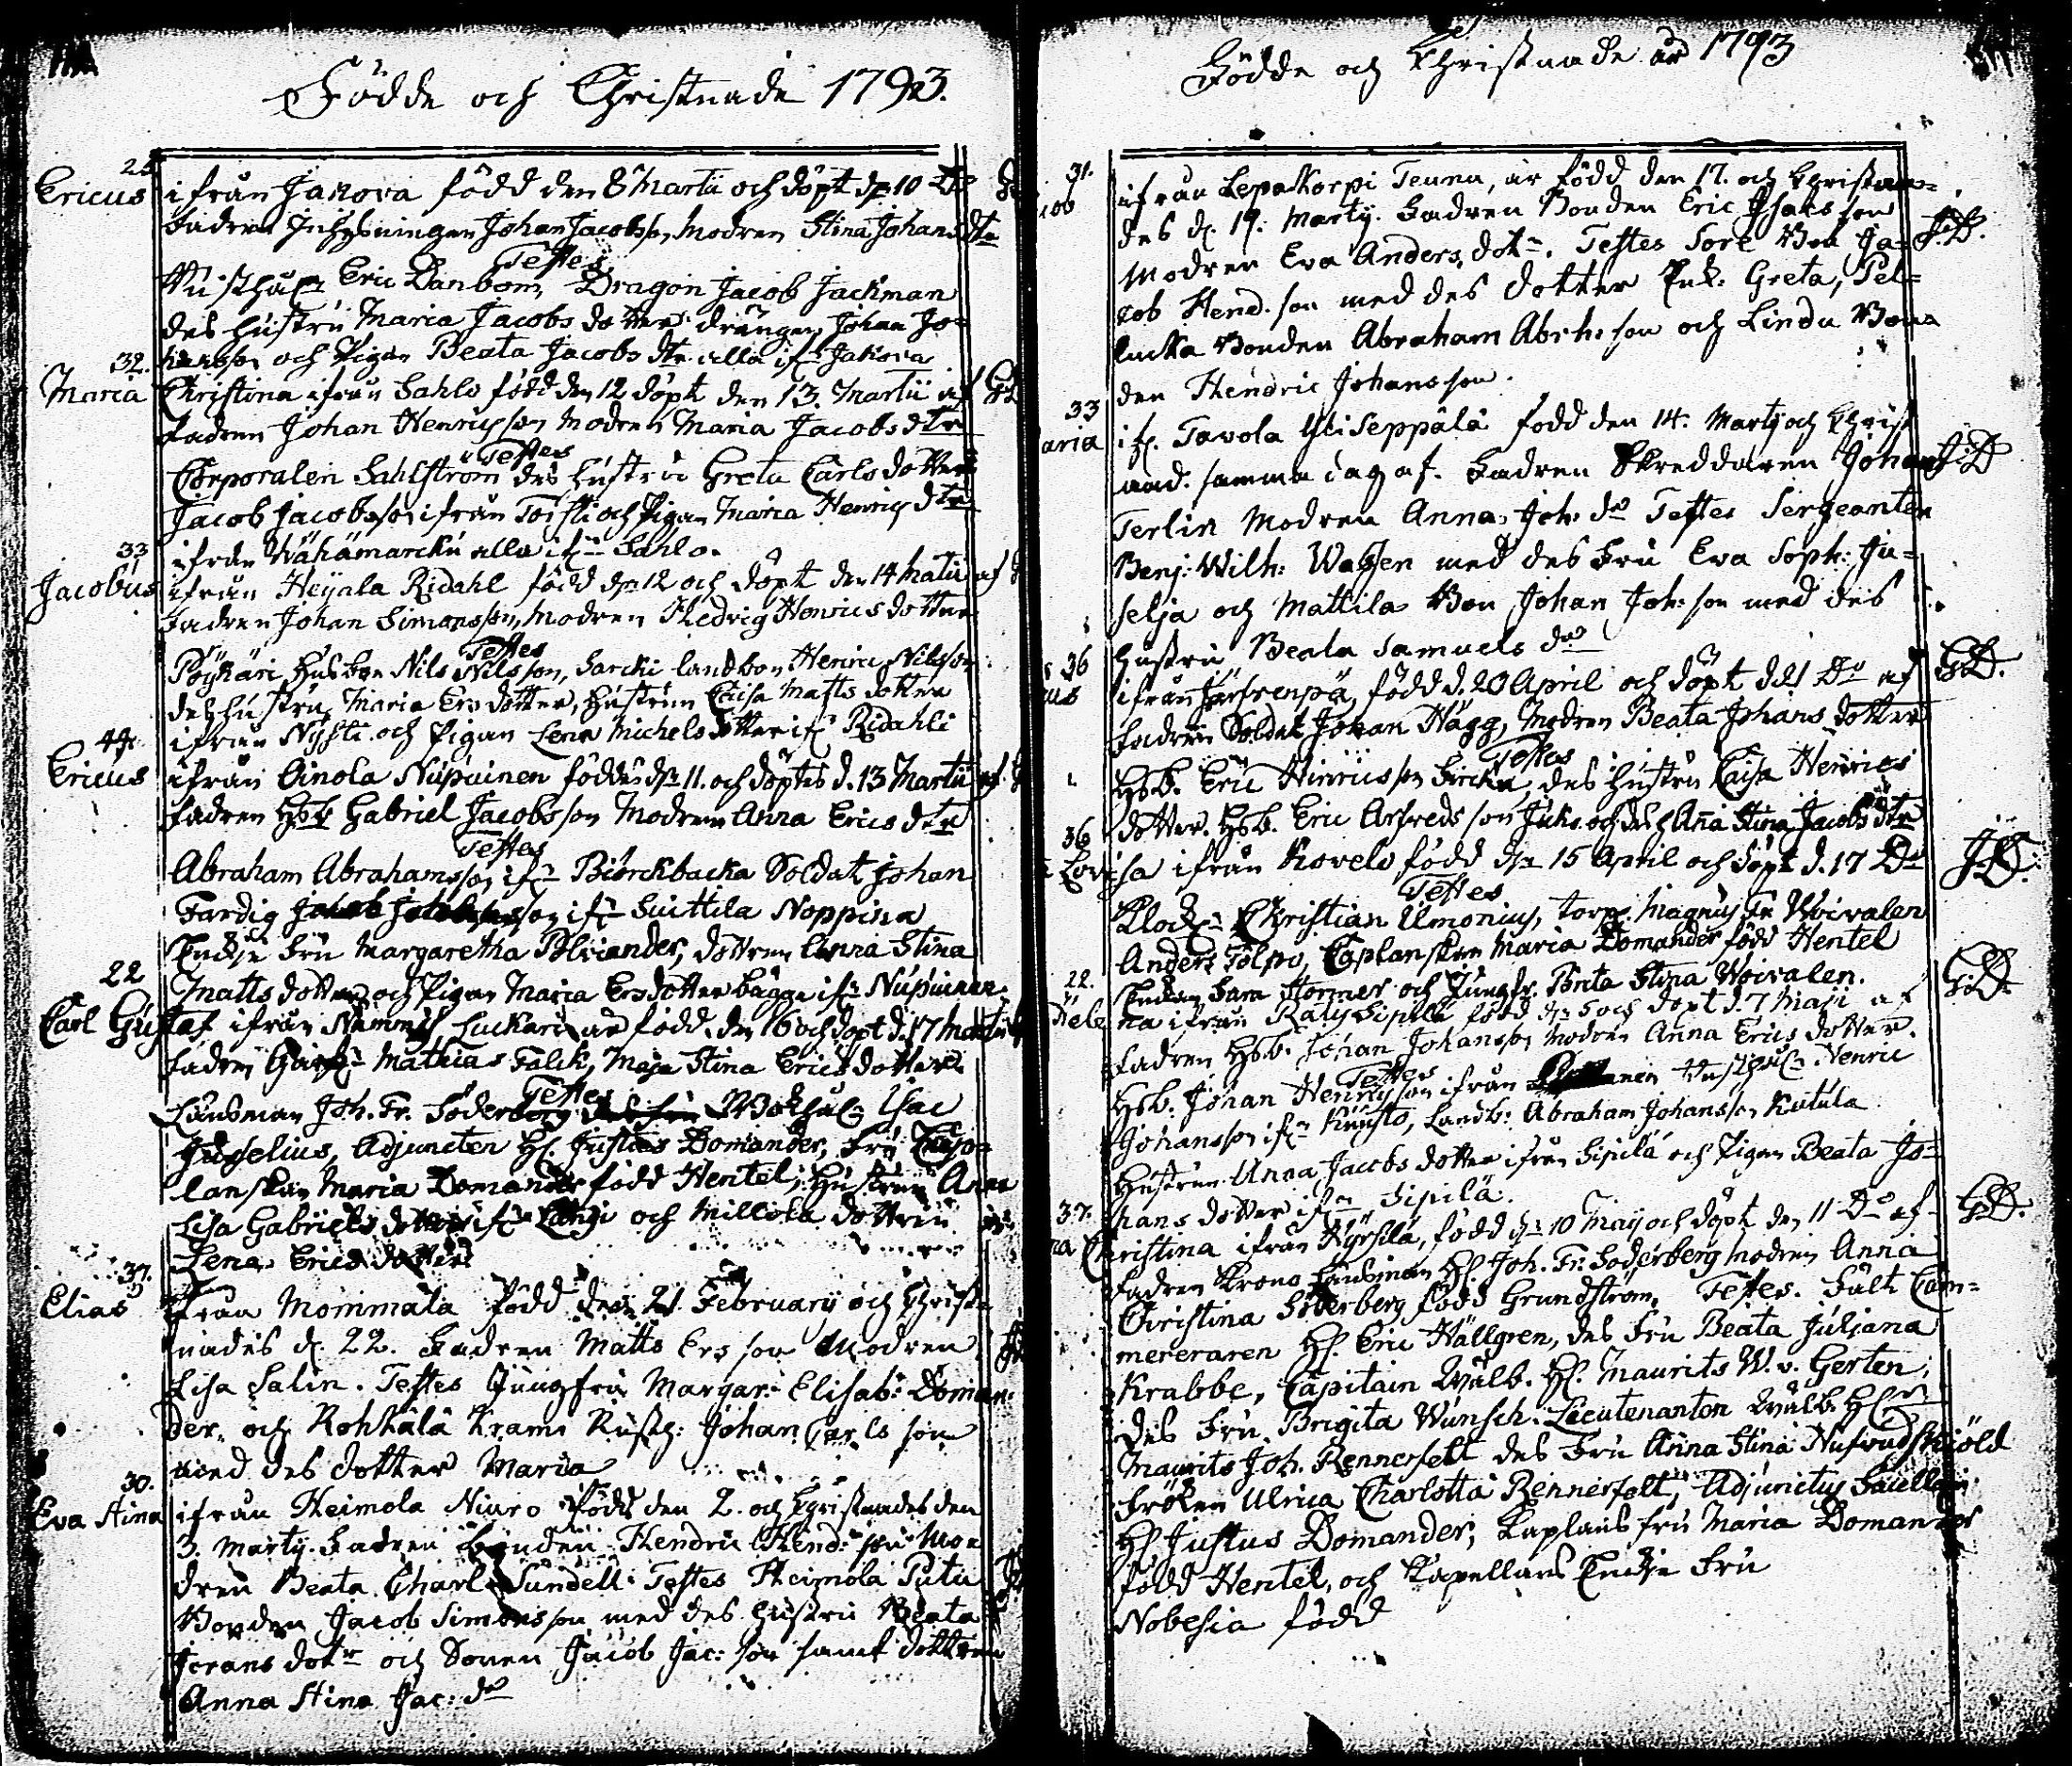 Födde och Christnade 1793.
Ericus ifrån Jakova född den 8 Martii och döpt dn 10 Do
Fadren Inhysningen Johan Jacobsson, Modren Stina Johans dtr
Testes
Eric Danbom, Dragon Jacob Jackman
des hustru Maria Jacobs dotter drängen Johan Jo-
hansson och Pigan Beata Jacobs dtr alla ifn Jakova
32.
Maria Christina ifrån Sahlo född den 12 döpt den 13. Martii af
Fadren Johan Henricsson Modren Maria Jacobs dtr
Testes
Corporalen Sahlström des hustru Greta Carls dotter
Jacob Jacobsson ifrån Torsti och Pigan Maria Henrics dtr
ifrån Wähämarcku alla ifn Sahlo.
33
Jacobus ifrån Heynla Ridahl född dn 12 och döpt den 14 Matii af
Fadren Johan Simonsson, Modren Hedvig Henrics dotter
Testes
Pöykäri Husbon Nils Nilsson, Sarcki landbon Henric Nilsson
des hustru Maria Ers dotter, hustrun Caisa Matts dotter
ifrån Nysti och Pigan Lena Michels dotter ifn Ridahli
44.
Ericus ifrån Oinola Nupuinen föddes dn 11. och döptes d. 13 Martii af
Fadren Hsb Gabriel Jacobsson Modren Anna Erics dtr
Testes
Abraham Abrahamsson ifn Biörckbacka Soldat Johan
Fardig ifn Suittila Noppina
Enckje Fru Margaretha Polviander, dottren Anna Stina
Matts dotter och Pigan Maria Ersdotter bägge ifn Nupuinen
22
Carl Gustaf ifrån Nummis Luckari är född den 16 och döpt d. 17 Martii
Fadren Mathias Falck, Maja Stina Erics dotter
Testes
Länsman Joh. Fr. Söderberg Isac
Juselius, Adjuncten H. Justus Domander, Fru Cap-
lanskan Maria Domander född Hentel, Hustrun Anna
Lisa Gabriels dotter ifn Långi och Millola dottren
Lena Erics dotter
37.
Elias ifrån Mommala född den 21. February och Christ-
nades d. 22. Fadren Matts Ersson Modren
Lisa Salin. Testes Jungfru Margar. Elisab: Doman-
der, och Rohkala Krams Rusth: Johan Carls son
med des dotter Maria
30.
Eva Stina ifrån Heimola Niuro född den 2. och Christnades den
3. Marty. Fadren Bonden Hendric Hend: son Mo-
dren Beata Charl. Sundell. Testes Heimola Putu
Bonden Jacob Simonsson med des hustru Beata
Jörans dotr och Sonen Jacob Jac: son samt dottren
Anna Stina Jac: dr
Födde och Christnade år 1793
31.
ifrån Lepakorpi Teunu, är född den 17. och Christna-
des d. 19. Marty. Fadren Bonden Eric Isacs son
Modren Eva Anders dotr. Testes Sore Bon Ja- J.D.
cob Hend. son med des dotter Enk. Greta, Pel-
lucka Bonden Abraham Abrh: son och Lindu Bon-
den Hendric Johans son.
33
aria if. Tavola Yliseppälä född den 14. Marty och Christ
nad. samma dag af. Fadren Skreddaren Johan J:D
Terlin Modren Anna Joh: dr Testes Sergeanten
Benj: Wilh: Waljen med des Fru Eva Soph: Ju-
selja och Mattila Bon Johan Joh: son med des
hustru Beata Samuels dr
36
ifrån född d. 20 April och döpt d 21 Do af G.D.
Fadren Soldat Johan Hägg, Modren Beata Johans dotter
Testes
Hsb. Eric Hinricsson Sircka, des hustru Caisa Henrics
dotter. Hsb. Eric Arfreds son Juhs. och des h Anna Stina Jacobs dtr
36
Lovisa ifrån Kovelo född dn 15 April och döpt d. 17 Do J.D.
Testes
Klock. Christian Ulmonius, torp. Magnus Fr Woivalen
Anders Tolpo, Caplanskan Maria Domander född Hentel
Enckan Sara Stormer och Jungfr. Brita Stina Woivalen.
22.
Helena ifrån Räty Sipilä född dn 5 och döpt d. 7 Maji af G.D.
Fadren Hsb. Johan Johansson Modren Anna Erics dotter.
Testes
Hsb. Johan Henricsson ifrån Henric
Johansson ifn Kuusto, Landb: Abraham Johansson Kutula
Hustrun Anna Jacobs dotter ifrån Sipilä och Pigan Beata Jo-
hans dotter ifrn Sipilä.
37.
na Christina ifrån Hyrsilä, född dn 10 May och döpt den 11 Do af G.D.
Fadren Krono Länsman H. Joh. Fr. Söderberg Modren Anna
Christina Söderberg född Grundström. Testes. Fält Cam-
mereraren H. Eric Hällgren, des Fru Beata Juliana
Krabbe, Capitain Wälb. H. Maurits W. v. Gerten,
des Fru Brigita Wunsch. Lieutenanten Wälb H.
Maurits Joh. Rennerfelt des Fru Anna Stina Nufrudskiöld
Fröken Ulrica Charlotta Rennerfelt, Adjunctus
H. Justus Domander, Kaplans fru Maria Domander
född Hentel, och Kapellans Enckje Fru
Nobesia född